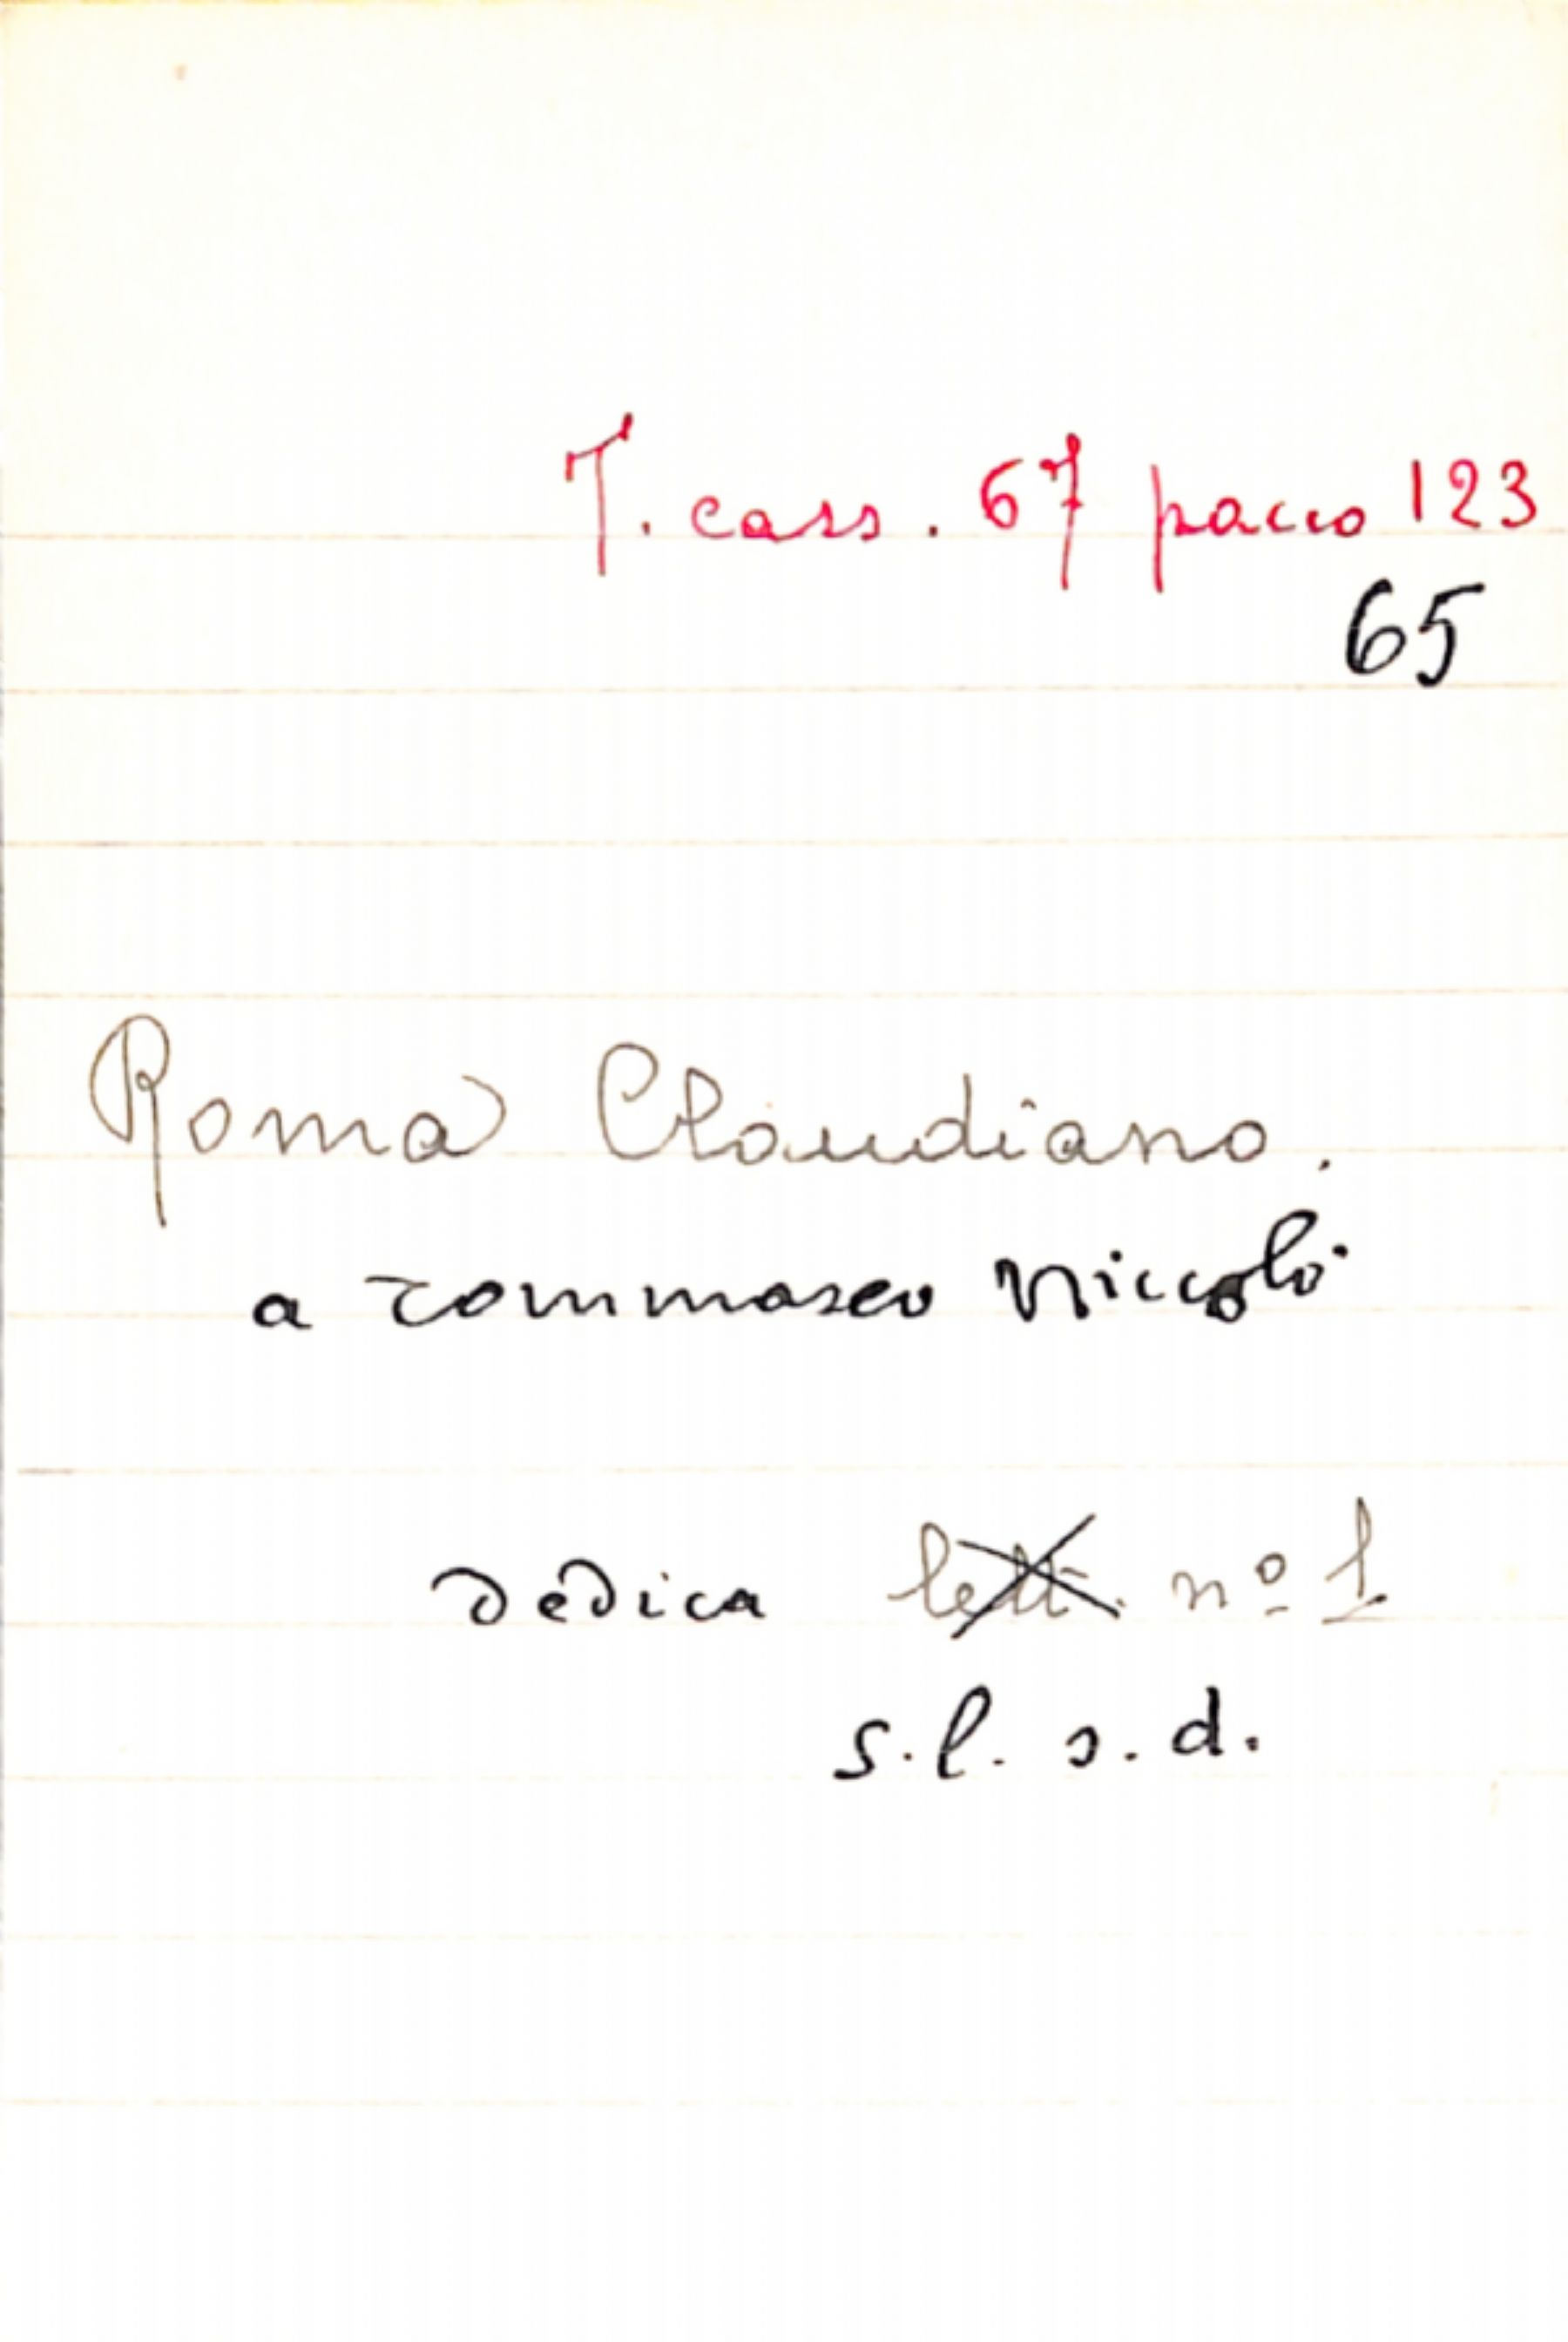 T. cass. 67 pacco 123
65
Roma Claudiano.
a Tommaseo Niccolò
dedica lett. nº 1
s.l. s.d.